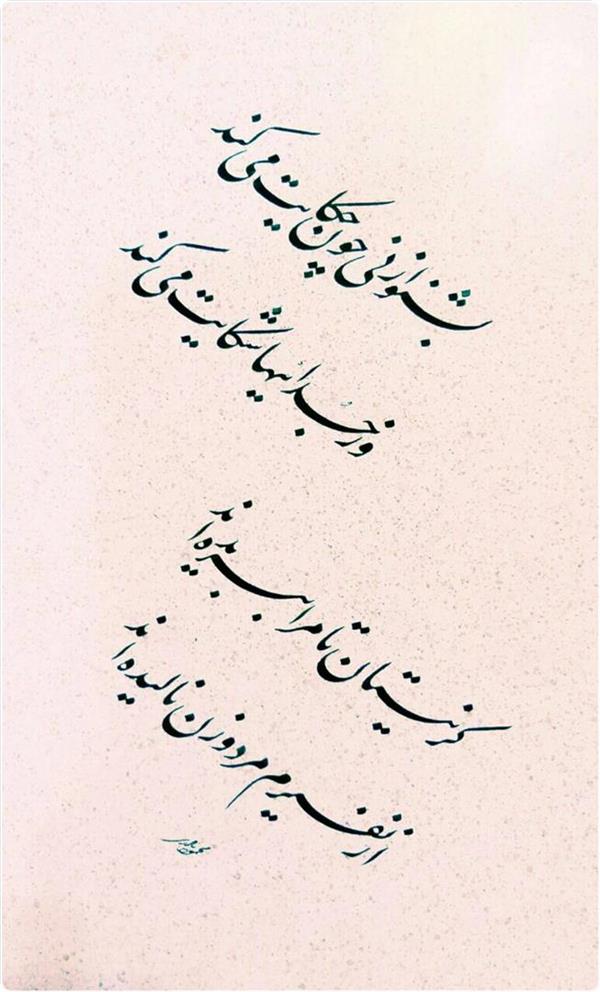 بشنو از نی چون حکایت می کند
وز جدائیها شکایت می کند
کز نیستان تا مرا ببریده اند
از نفیرم مرد و زن نالیده اند